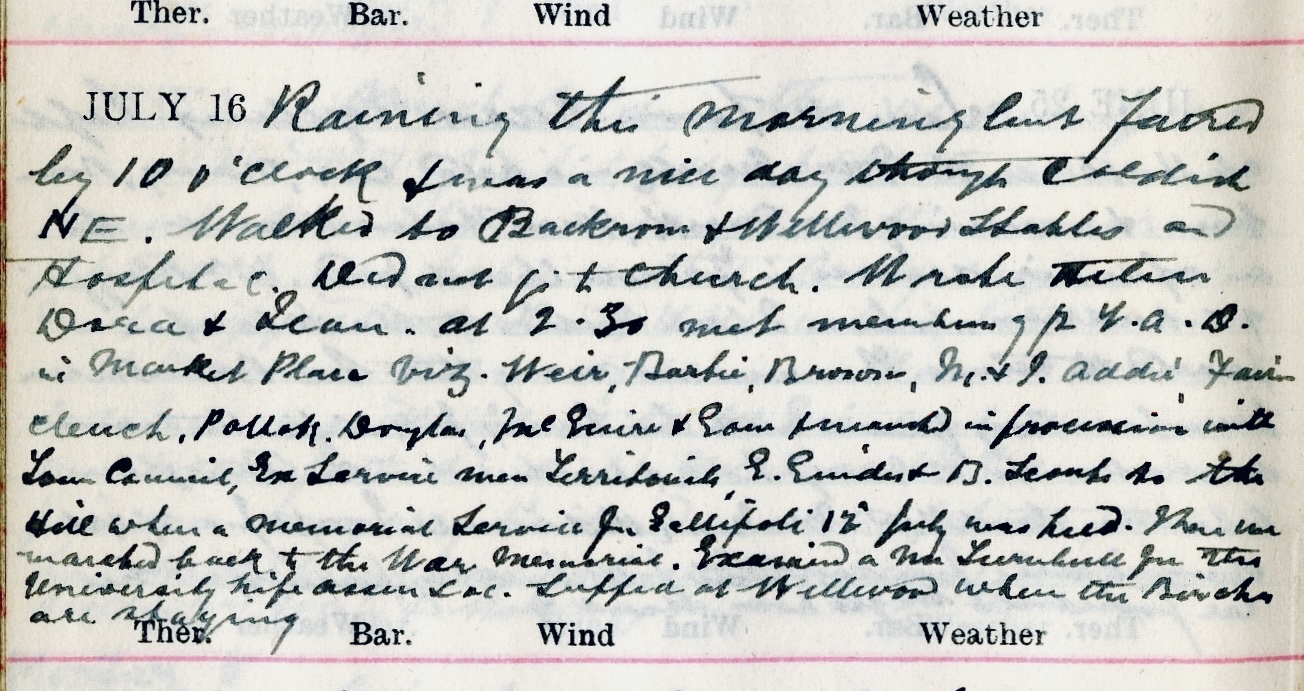 Ther. Bar. Wind Weather
JULY 16 Raining this morning but faired
by 10 o'clock & was a nice day though coldish
NE. Walked to Backrow & Wellwood Stables and
Hospital. Did not go to church. Wrote
Dora & Jean. at 2.30 met members of R.F.A.
in Market Place viz. Weir, Barbie, Brown, M. & J. Addie Fair
cleuch, Pollok, Douglas, McGuire & Eom & marched in procession with
Town Council, Ex Service men Territorials, G. Guides & B. Scouts to the
Hill where a memorial Service for Gallipoli 12th July was held. Then we
marched back to the War Memorial. Examined a Mr Turnbull for the
University Life Assn Soc. Supped at Wellwood where the Birches
are staying
Ther. Bar. Wind Weather